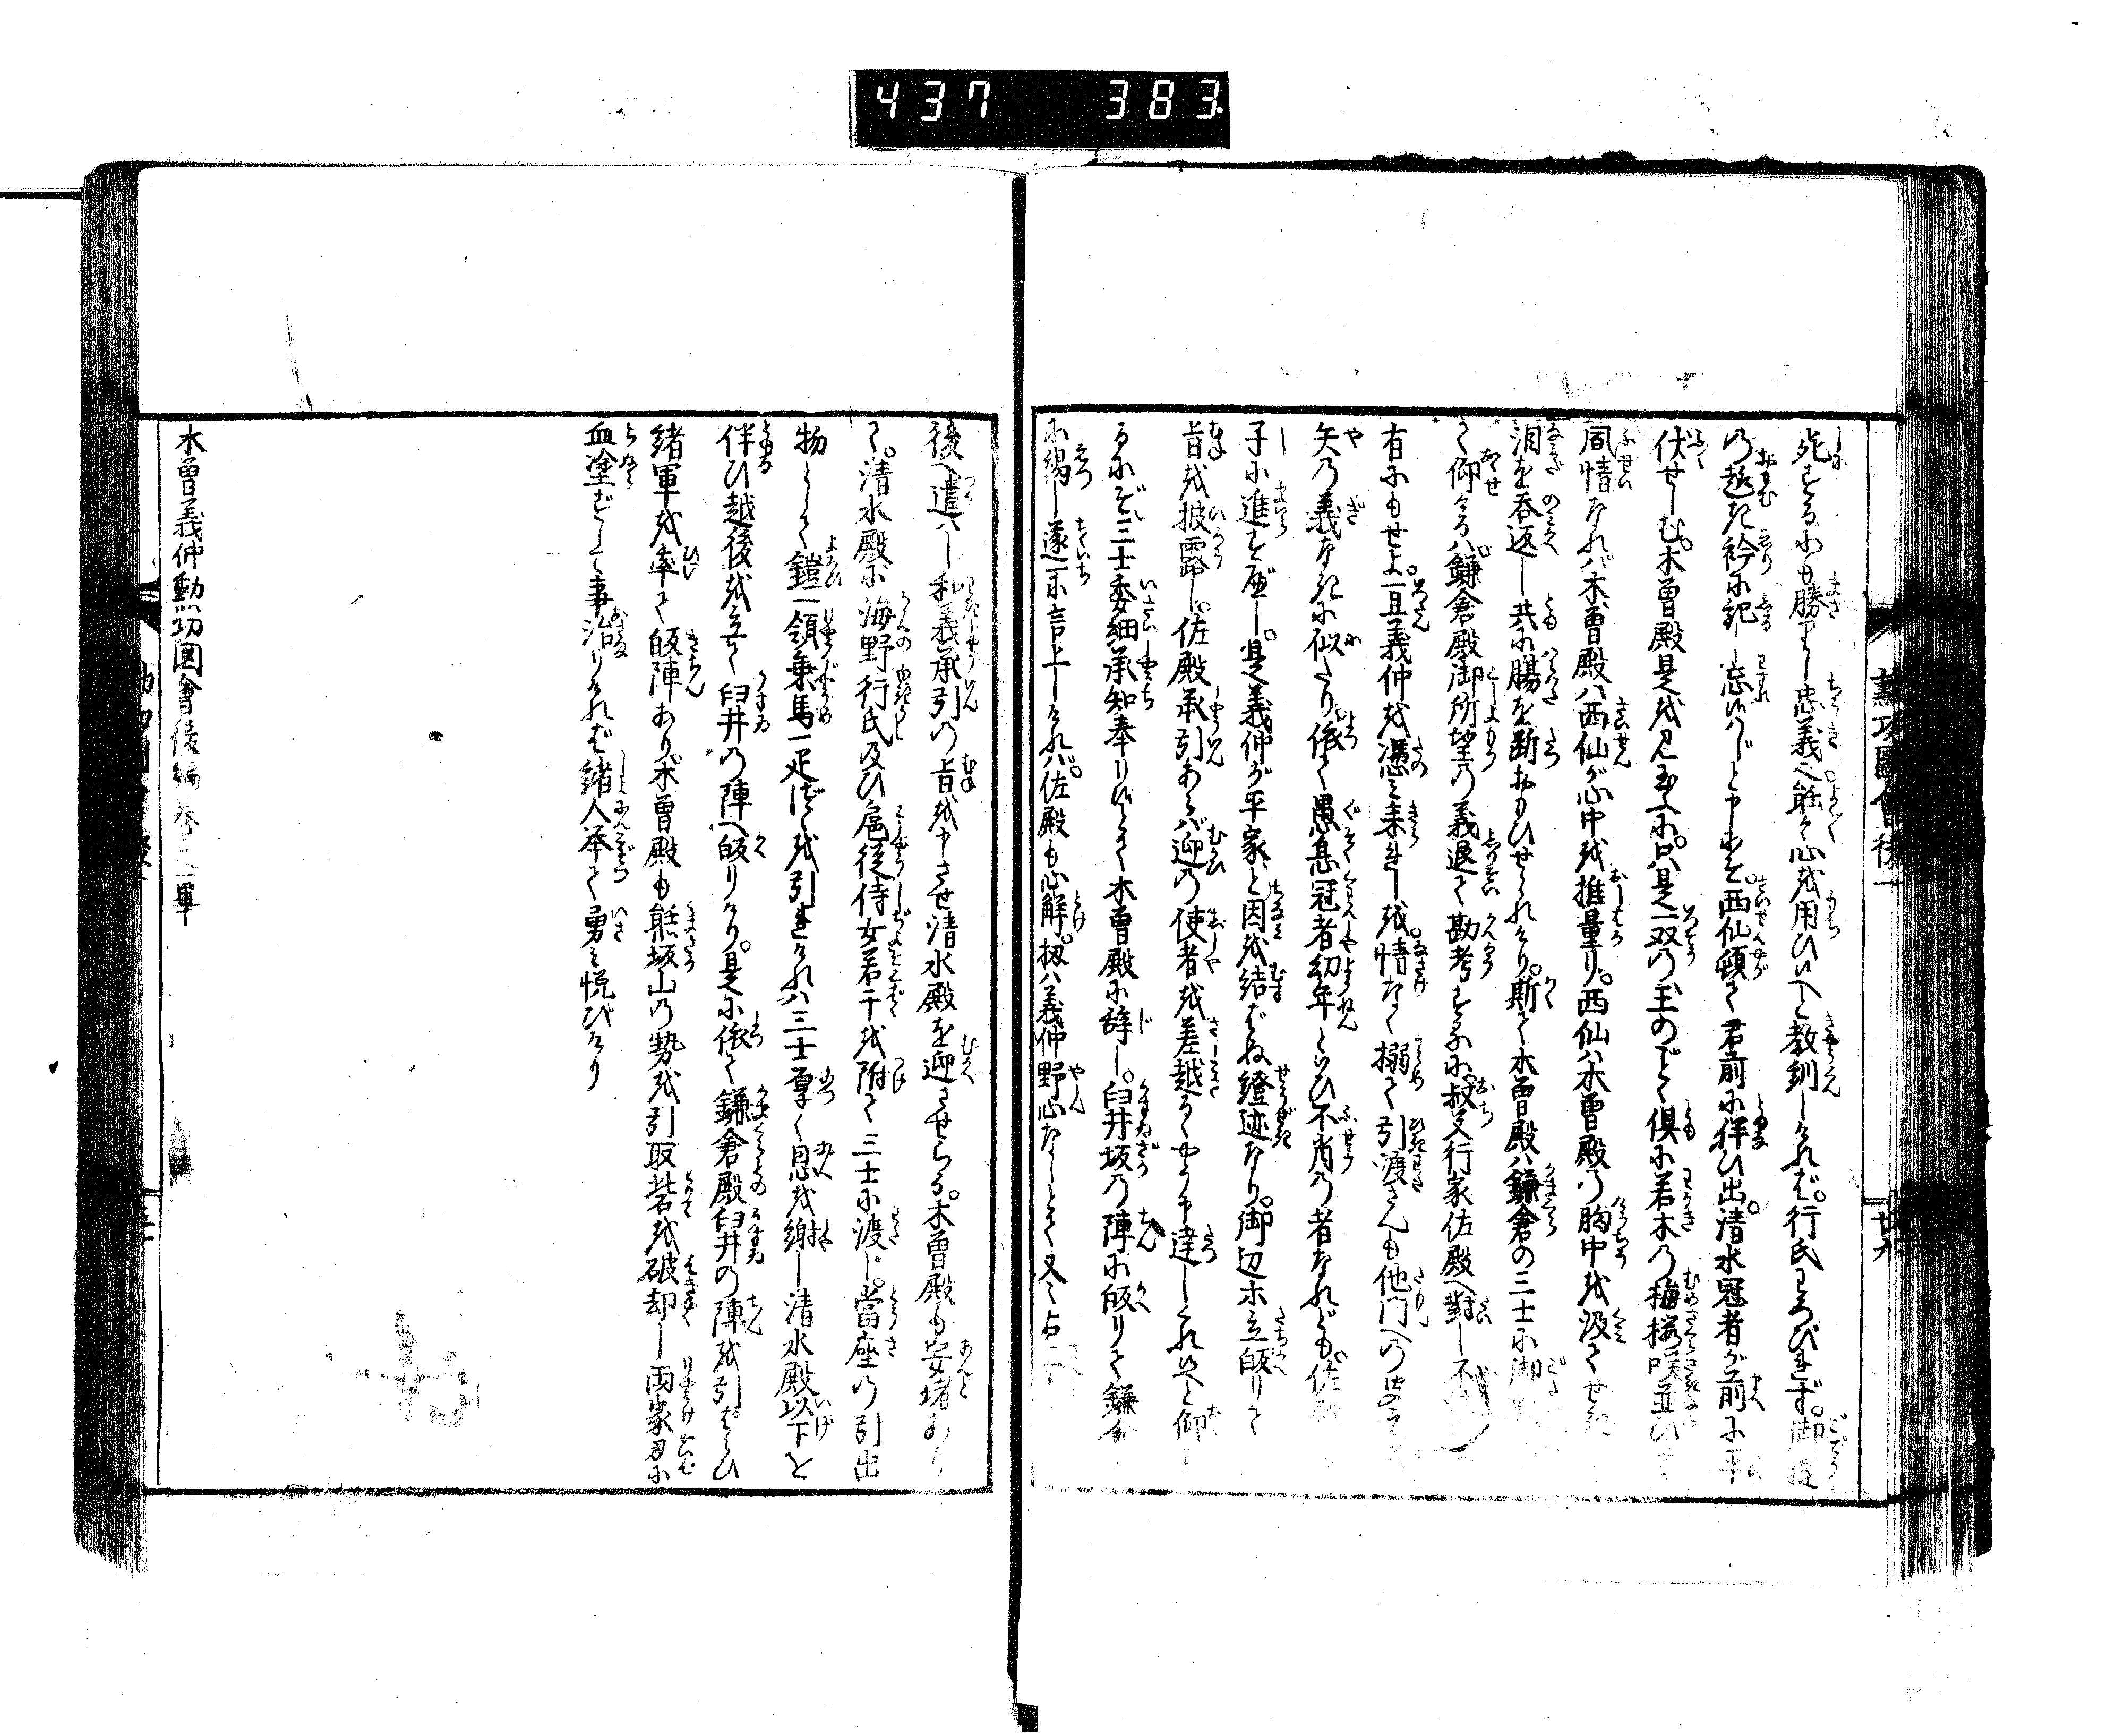 437 383
死するにも勝りし忠義ぞ能く心を用ひいへと教訓しければ。行氏よろこび
の趣を衿に記し忘れじと申にぞ。西仙頓て君前に伴ひ出。清水冠者が前に平
伏せしむ。木曽殿是を見玉ふに。只是一双の玉のごとく倶に若木の梅桜咲並び
風情なれバ木曽殿ハ西仙が心中を推量り。西仙ハ木曽殿の胸中を汲てせき
泪を呑返し共に腸を断おもひせられけり。斯て木曽殿ハ鎌倉の三士に御
て仰けるハ。鎌倉殿御所望の義退て勘考するに。叔父行家佐殿へ對し不
有にもせよ。一旦義仲を憑み来りしを。情なく搦て引渡さんも他門への
矢の義なきに似たり。依て愚息冠者幼年といひ不肖の者なれども。佐殿
子に進ずべし。是義仲が平家と因を結ばぬ證迹なり。御辺等立皈りて
旨を披露し。佐殿承引あらバ迎の使者を差越るゝやう申達しくれいへと仰
るにぞ。三士委細承知奉りいとて木曽殿に辞し。臼井坂の陣に皈りて鎌倉
に謁し逐一に言上しけれバ。佐殿も心解。扨ハ義仲野心なしとて又々
後へ遣ハし和義承引の旨を申させ清水殿を迎させらる。木曽殿も安堵あり
て。清水殿に海野行氏及ひ扈従侍女若干を附て三士に渡し。當座の引出
物として鎧一領乗馬一疋づゝを引れけれハ三士厚く恩を謝し清水殿以下を
伴ひ越後を立て臼井の陣へ皈りけり。是に依て鎌倉殿臼井の陣を引はらひ
諸軍を率て皈陣あり。木曽殿も熊坂山の勢を引取砦を破却し両家刃に
血塗ずして事治りけれバ諸人挙て勇み悦びけり
木曽義仲勲功図會後編巻之一畢
勲功図會後一
廿九